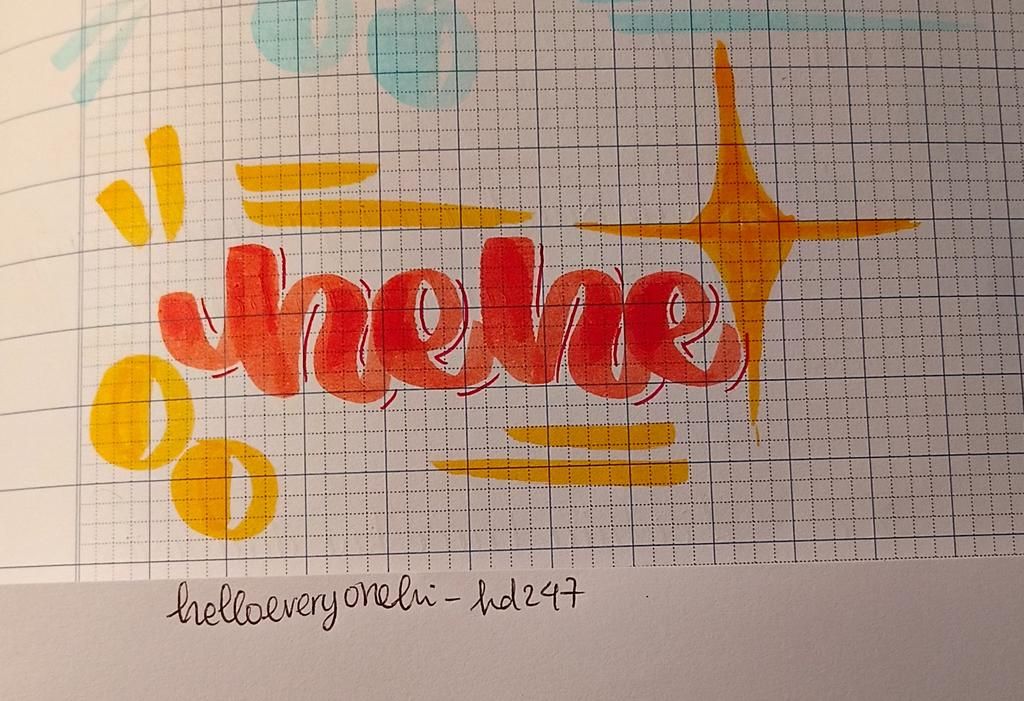 hehe
helloeveryonehi - hd247